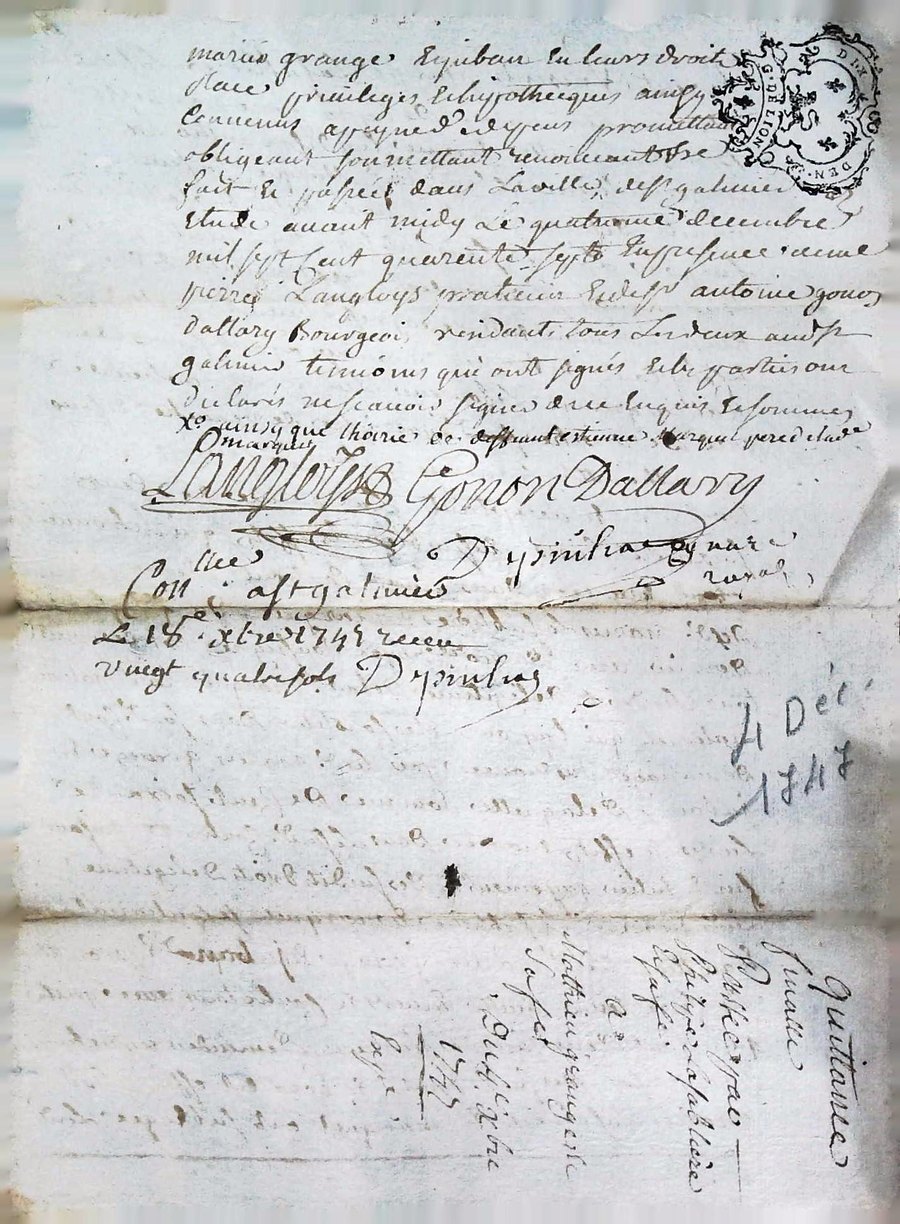 mariés grange Et juban En leurs droit
place privileges Et hypotheques ainsy
Convenus a peyne d depens promettant
obligeant soumettant renonceant
fait Et passé dans La ville de st galmier
Etude avant midy Le quatrieme decembre
mil sept Cent quarente sept En presence de me
pierre Langloys praticien Et de sr antoine gonon
Dallary Bourgeois, tous Les deux aud st
galmier temoins qui ont signés Et les parties ont
declarés ne scavoir signer de ce Enquis Et sommés
ainsy que lhoirie de deffunt estienne marquet pere
marquet
Langloys Gonon Dallary
Depinhac
royal
Conllee a st galmier
Le 18e xbre 1747 receu
vingt quatre sols Depinhac
G. DE LION
DEN
4 Déc.
1747
Quittance
finalle
Passée par
La sabliere
Et safe
a
Mathieu grange de
Du 4e xbre
1747
Expe